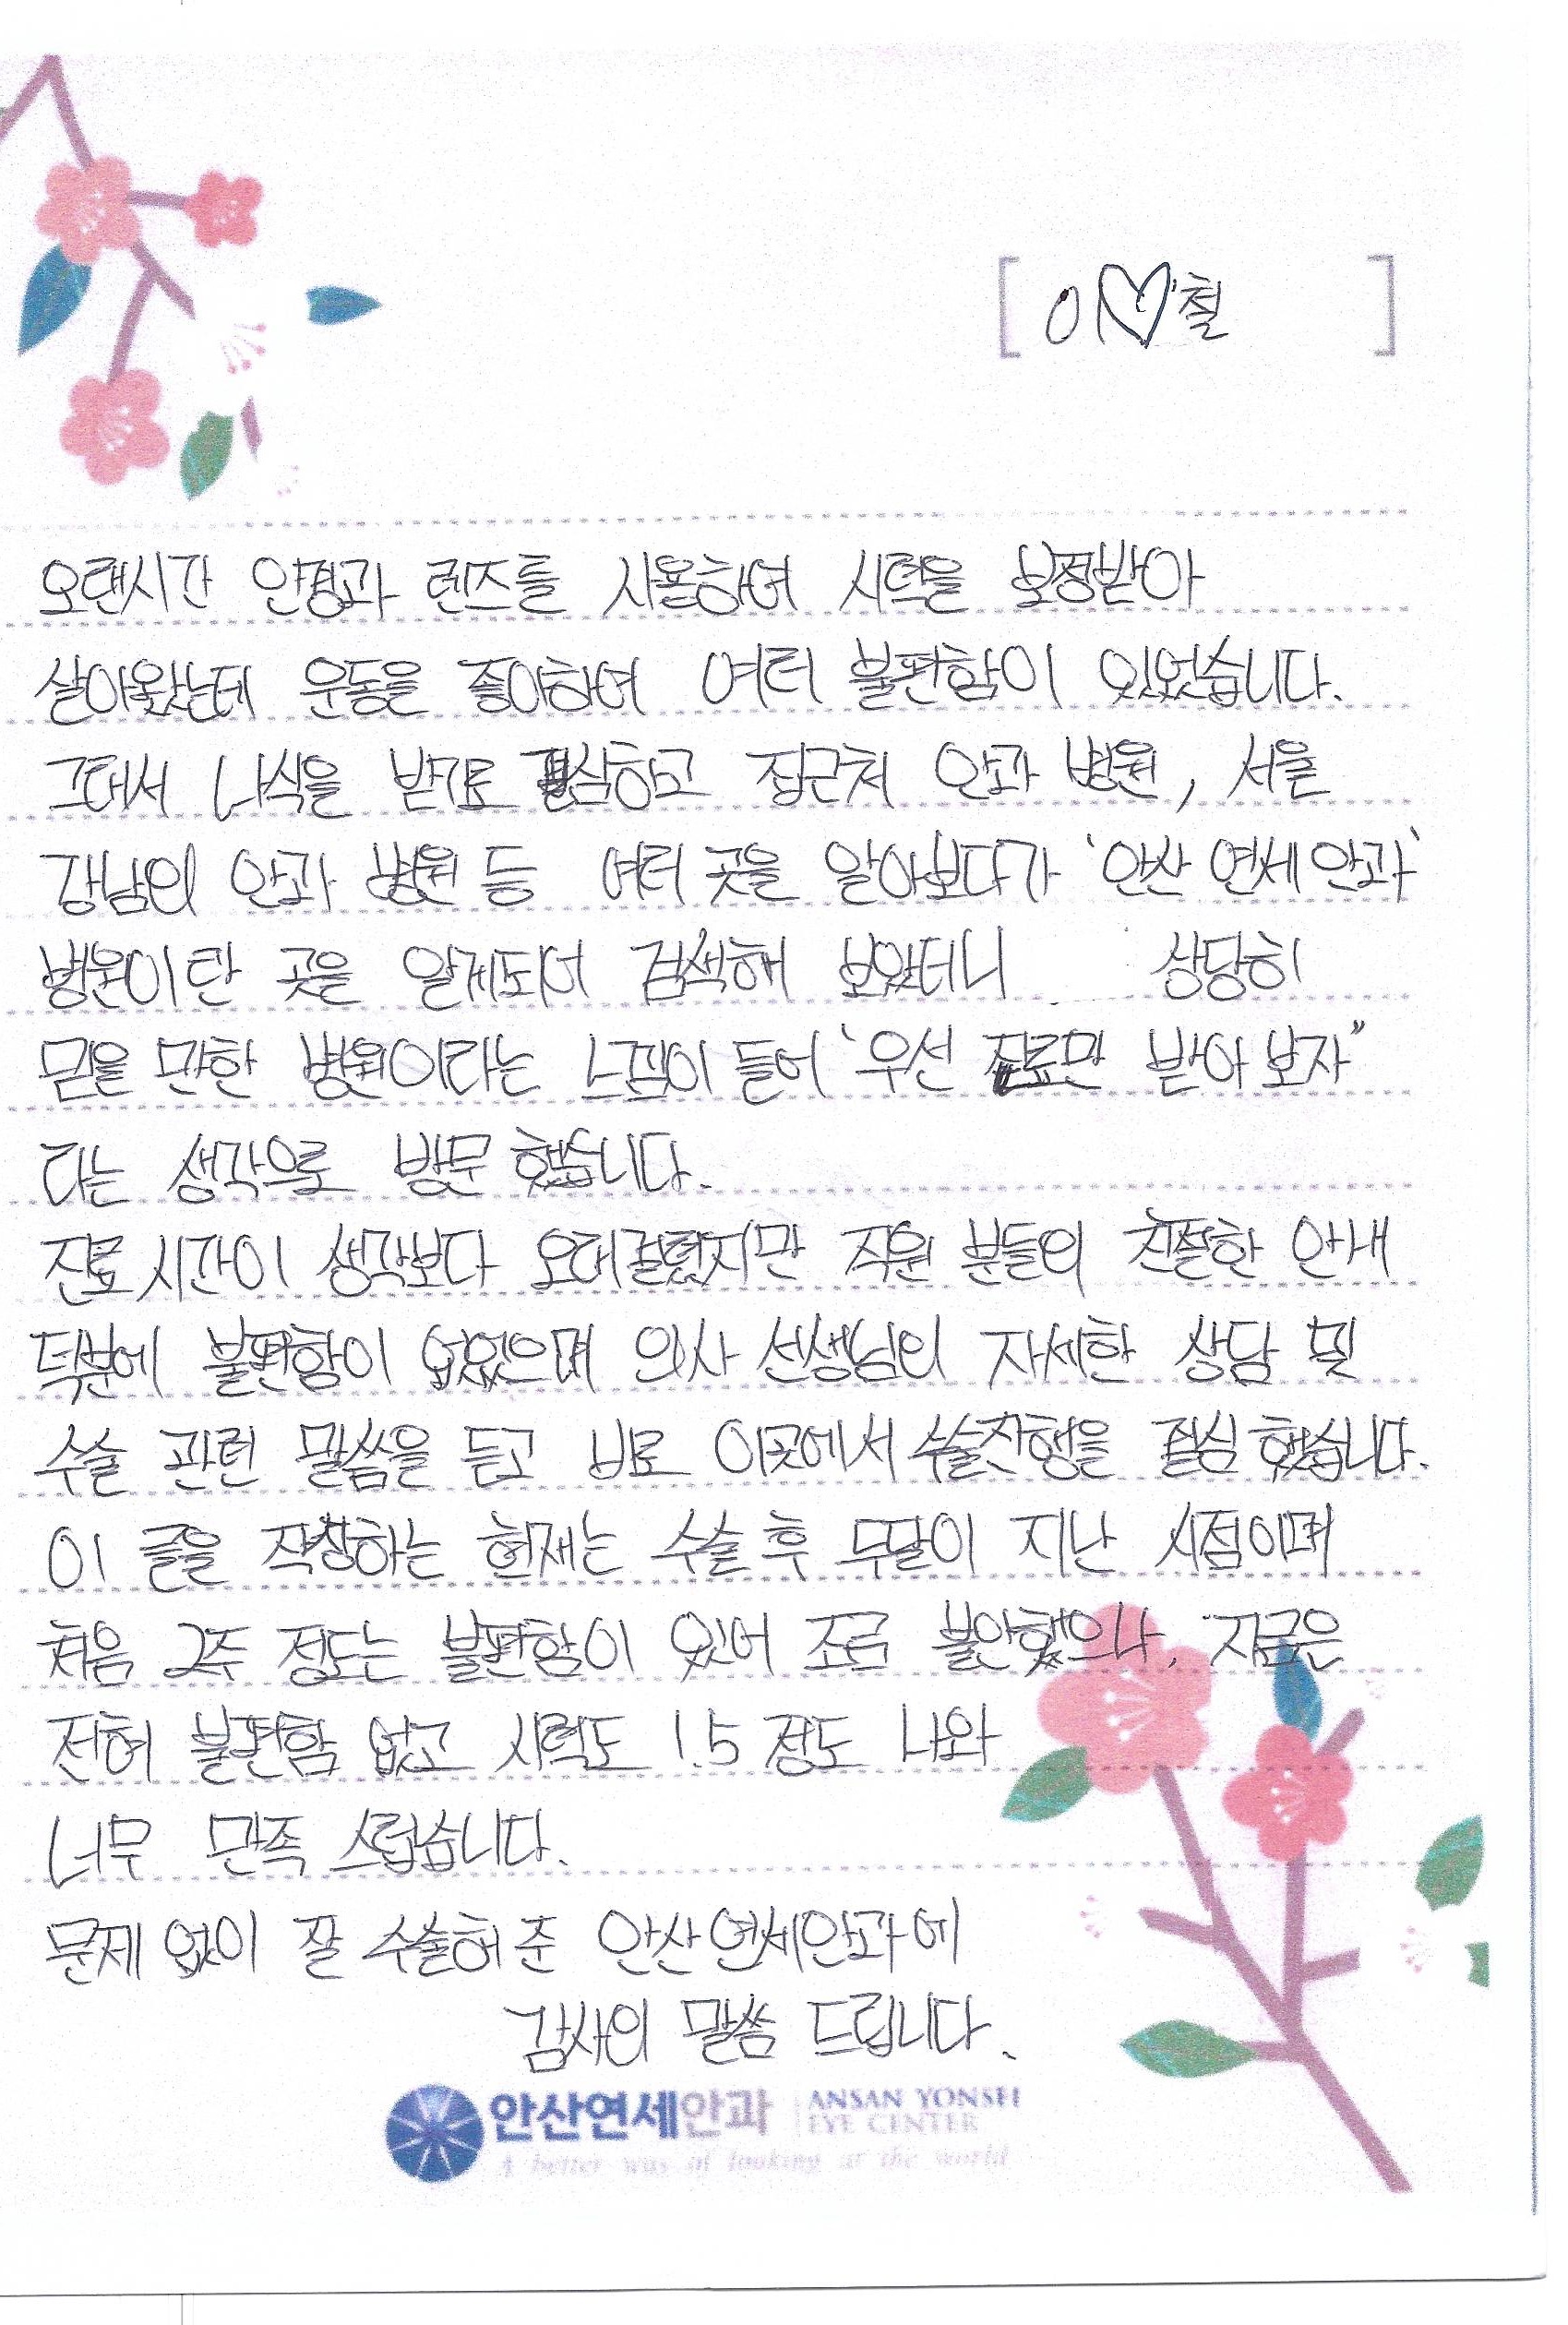 [ 이♡철 ]
오랜시간 안경과 렌즈를 사용하여 시력을 보정받아
살아왔는데 운동을 좋아하여 여러 불편함이 있었습니다.
그래서 나식을 받기로 결심하고 집근처 안과 병원, 서울
강남의 안과 병원 등 여러 곳을 알아보다가 '안산 연세 안과'
병원이란 곳을 알게되어 검색해 보았더니 상당히
믿을 만한 병원이라는 느낌이 들어 '우선 진료만 받아 보자"
라는 생각으로 방문 했습니다.
진료 시간이 생각보다 오래걸렸지만 직원 분들의 친절한 안내
덕분에 불편함이 없었으며 의사 선생님의 자세한 상담 및
수술 관련 말씀을 듣고 바로 이곳에서 수술진행을 결심 했습니다.
이 글을 작성하는 현재는 수술 후 두달이 지난 시점이며
처음 2주 정도는 불편함이 있어 조금 불안했으나, 지금은
전혀 불편함 없고 시력도 1.5 정도 나와
너무 만족 스럽습니다.
문제 없이 잘 수술해 준 안산연세안과에
감사의 말씀 드립니다.
안산연세안과 ANSAN YONSEI
EYE CENTER
A better way of looking at the world